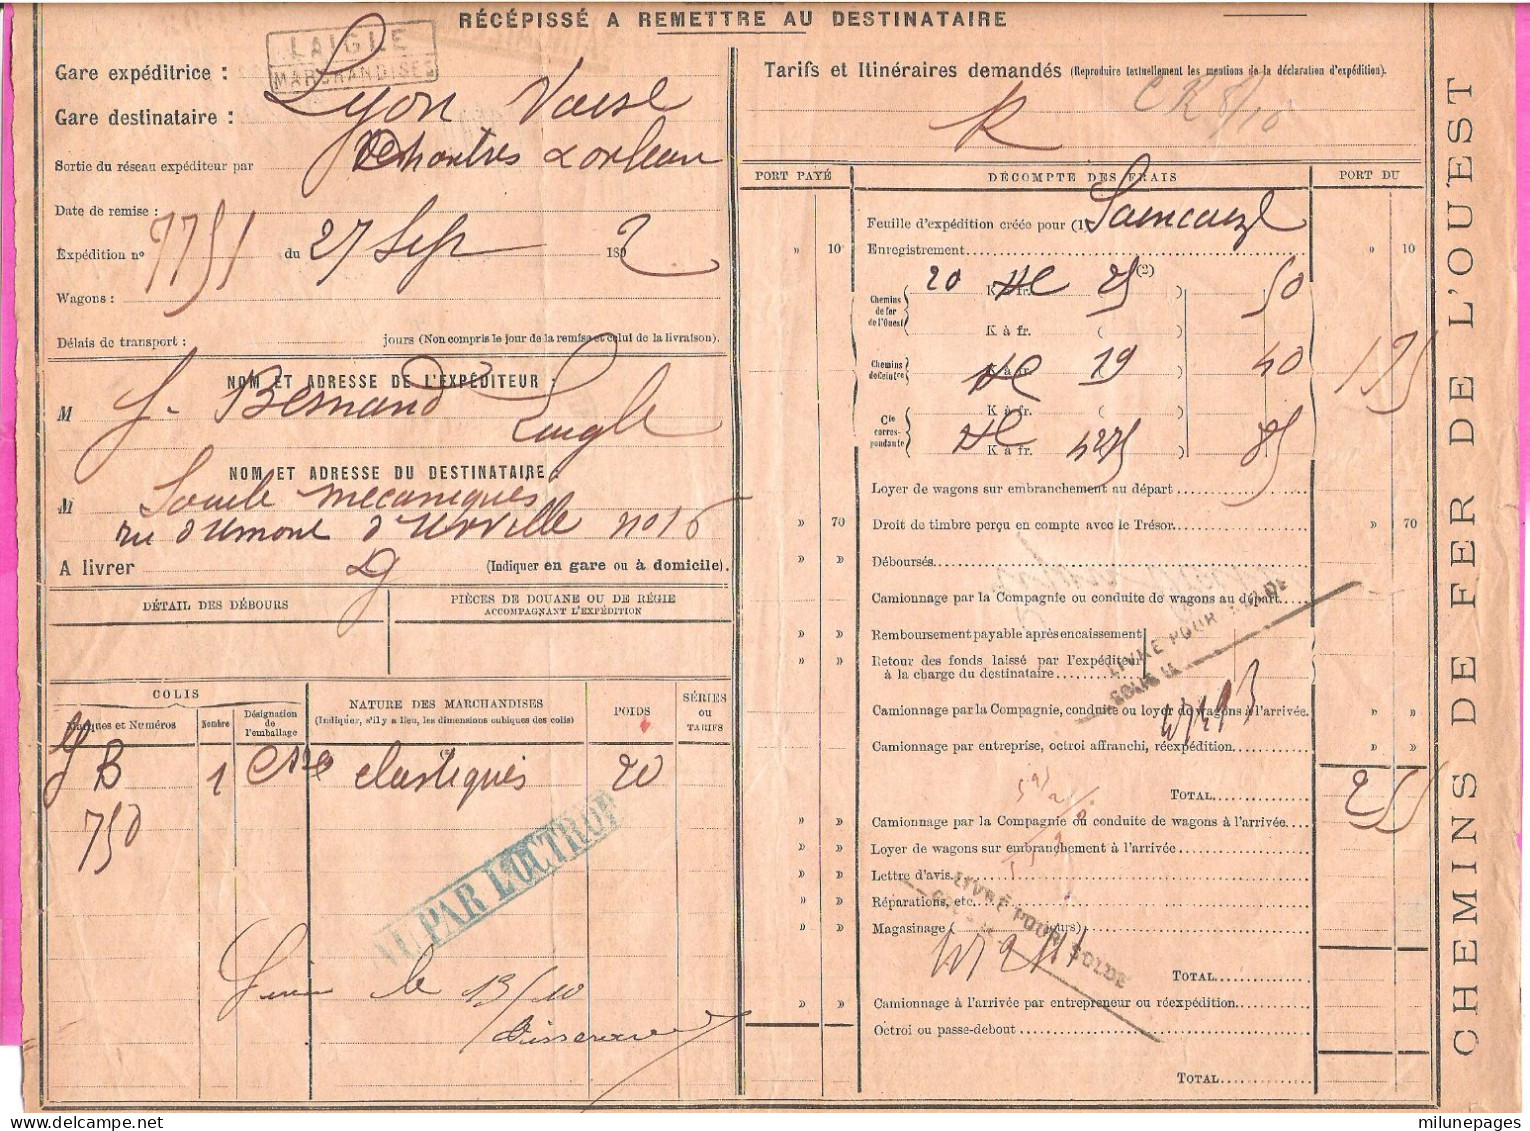 RÉCÉPISSÉ A REMETTRE AU DESTINATAIRE
LAIGLE
MARCHANDISES
Gare expéditrice :
Gare destinataire : Lyon Vaise
Sortie du réseau expéditeur par Chartres & Orléans
Date de remise :
Expédition nº 7751 du 27 Sept 1892
Wagons :
Délais de transport : jours (Non compris le jour de la remise et celui de la livraison).
NOM ET ADRESSE DE L'EXPÉDITEUR :
M J. Besnard Laigle
NOM ET ADRESSE DU DESTINATAIRE :
M mécaniques
rue d'Urville no 16
A livrer (Indiquer en gare ou à domicile).
DÉTAIL DES DÉBOURS
PIÈCES DE DOUANE OU DE RÉGIE
ACCOMPAGNANT L'EXPÉDITION
COLIS
Marques et Numéros
Nombre
Désignation de l'emballage
NATURE DES MARCHANDISES
(Indiquer, s'il y a lieu, les dimensions cubiques des colis)
POIDS
SÉRIES ou TARIFS
JB 1 Csse élastiques 20
750
VU PAR L'OCTROI
le 13/10
Tarifs et Itinéraires demandés (Reproduire textuellement les mentions de la déclaration d'expédition).
R
PORT PAYÉ
DÉCOMPTE DES FRAIS
PORT DU
Feuille d'expédition créée pour (1)
» 10 Enregistrement » 10
(2)
Chemins de fer de l'Ouest
20 K à fr. ( 25 ) 50
K à fr. ( )
Chemins de Ceinture
K à fr. 19 ) 40 175
K à fr. ( )
Cie correspondante
K à fr. 4275 ) 85
Loyer de wagons sur embranchement au départ
» 70 Droit de timbre perçu en compte avec le Trésor » 70
» » Déboursés
Camionnage par la Compagnie ou conduite de wagons au départ
» » Remboursement payable après encaissement
» » Retour des fonds laissé par l'expéditeur
à la charge du destinataire
LIVRÉ POUR SOLDE
Camionnage par la Compagnie, conduite ou loyer de wagons à l'arrivée. » »
Camionnage par entreprise, octroi affranchi, réexpédition » »
TOTAL 255
» » Camionnage par la Compagnie ou conduite de wagons à l'arrivée
» » Loyer de wagons sur embranchement à l'arrivée
» » Lettre d'avis
» » Réparations, etc.
» » Magasinage ( jours)
LIVRÉ POUR SOLDE
TOTAL
» » Camionnage à l'arrivée par entrepreneur ou réexpédition
Octroi ou passe-debout
TOTAL
CHEMINS DE FER DE L'OUEST
milunepages